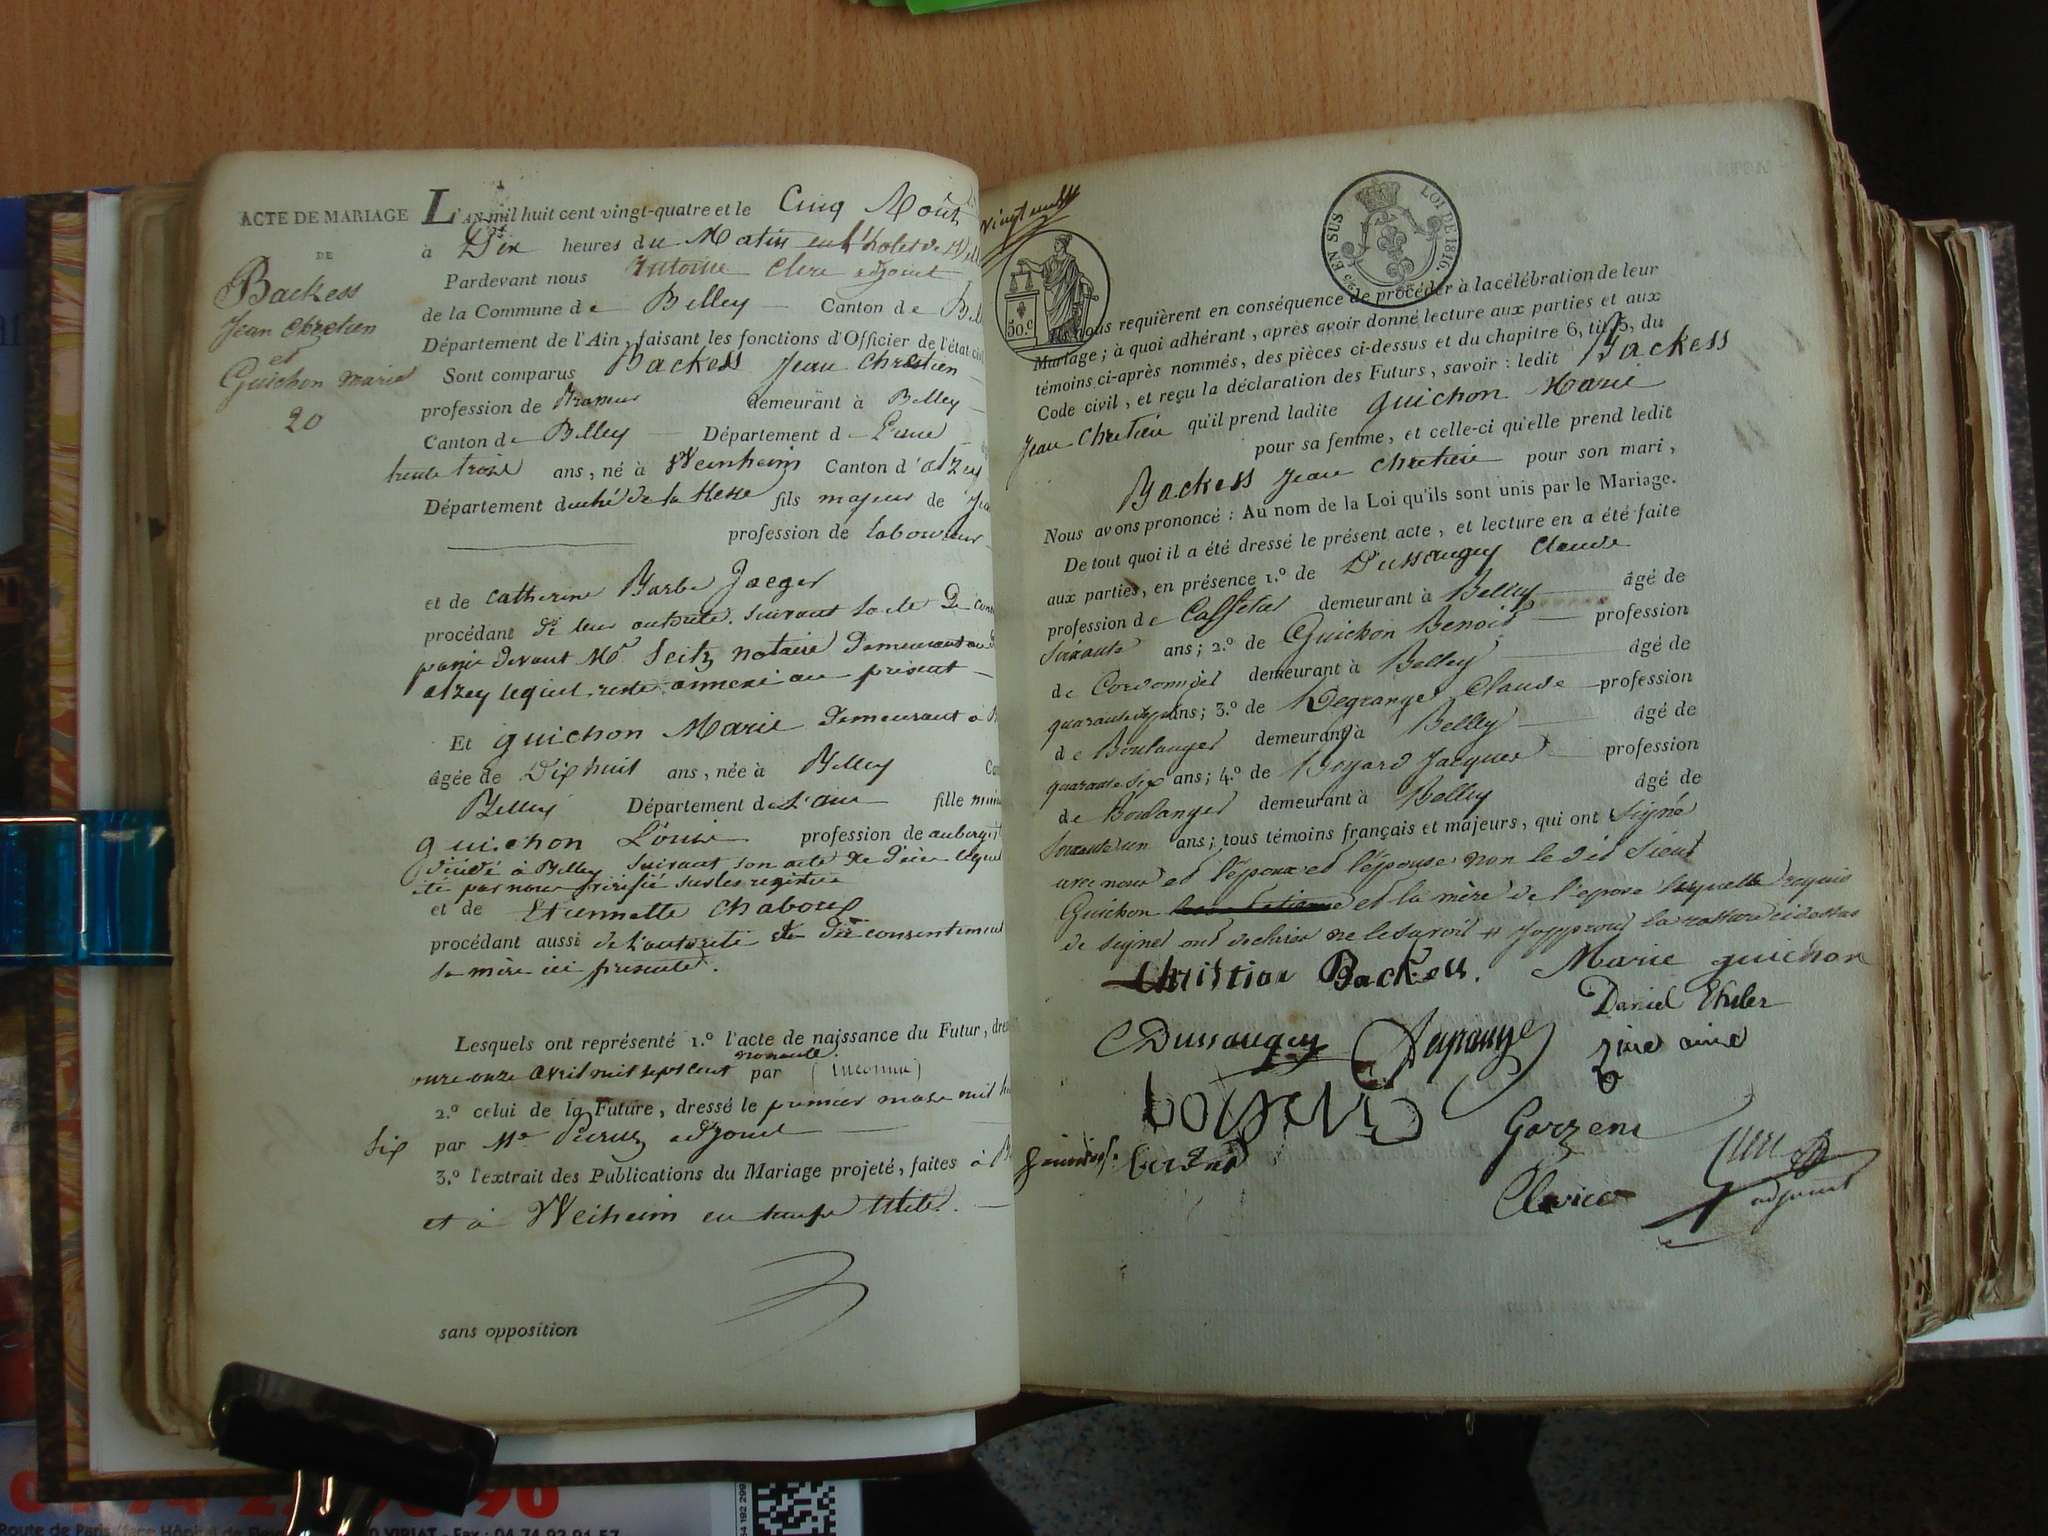 ACTE DE MARIAGE
DE
Backess
Jean Chretien
et
Guichon Marie
20
L'AN mil huit cent vingt-quatre et le Cinq Août
à Dix heures du Matin en l'hotel de Ville
Pardevant nous Antoine Clerc adjoint
de la Commune de Belley Canton de Bell
Département de l'Ain, faisant les fonctions d'Officier de l'état civil
Sont comparus Backess Jean Chretien
profession de demeurant à Belley
Canton de Belley Département de L'ain
trente trois ans, né à Weinheim Canton d'alzey
Département duché de la Hesse fils majeur de Jea
profession de laboureur
et de Catherine Barbe Jaeger
procédant de leur autorité suivant acte de cons
passé devant Mr Seitz notaire demeurant
alzey lequel reste annexé au présent
Et Guichon Marie demeurant à
âgée de Dix huit ans, née à Belley Can
Belley Département de L'ain fille min
Guichon Louis profession de aubergist
décédé à Belley suivant son acte de décès lequel
été par nous vérifié sur les registres
et de Etiennette Chaboux
procédant aussi de l'autorité de consentement
sa mère ici présente.
Lesquels ont représenté 1.º l'acte de naissance du Futur, dres
onze avril mil sept cent nonante par (inconnu)
2.º celui de la Future, dressé le premier mars mil hu
six par Mr adjoint
3.º l'extrait des Publications du Mariage projeté, faites à B
et à Weiheim en temps utile.
sans opposition
EN SUS
LOI DE 1816.
50.c
Ils nous requièrent en conséquence de procéder à la célébration de leur
Mariage; à quoi adhérant, après avoir donné lecture aux parties et aux
témoins ci-après nommés, des pièces ci-dessus et du chapitre 6, tit. 5, du
Code civil, et reçu la déclaration des Futurs, savoir: ledit Backess
Jean Chretien qu'il prend ladite Guichon Marie
pour sa femme, et celle-ci qu'elle prend ledit
Backess Jean Chretien pour son mari,
Nous avons prononcé: Au nom de la Loi qu'ils sont unis par le Mariage.
De tout quoi il a été dressé le présent acte, et lecture en a été faite
aux parties, en présence 1.º de Dussaugey Claude
profession de Caffetier demeurant à Belley âgé de
soixante ans; 2.º de Guichon Benoit profession
de Cordonnier demeurant à Belley âgé de
quarante sept ans; 3.º de Degrange Claude profession
de Boulanger demeurant à Belley âgé de
quarante six ans; 4.º de Boyard Jacques profession
de Boulanger demeurant à Belley âgé de
soixante un ans; tous témoins français et majeurs, qui ont signé
avec nous et l'époux et l'épouse non le dit sieur
Guichon et la mère de l'epouse lesquels requis
de signer ont déclaré ne le savoir # J'approuve la rature ci dessus
Christian Backess. Marie guichon
Daniel
CDussaugey
ainé
Clerc
adjoint